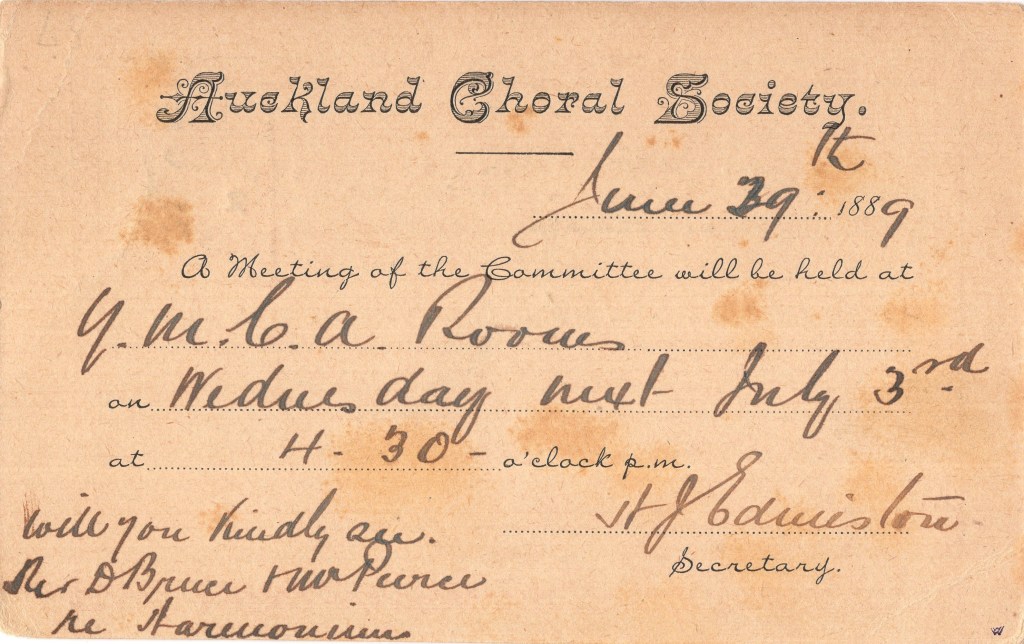 Auckland Choral Society.
June 29th 1889
A Meeting of the Committee will be held at
Y.M.C.A. Rooms
on Wednesday next July 3rd
at 4-30- o'clock p.m.
H J Edmiston
Secretary.
Will you kindly see.
Rev D Bruce & Mr Peirce
re Harmonium